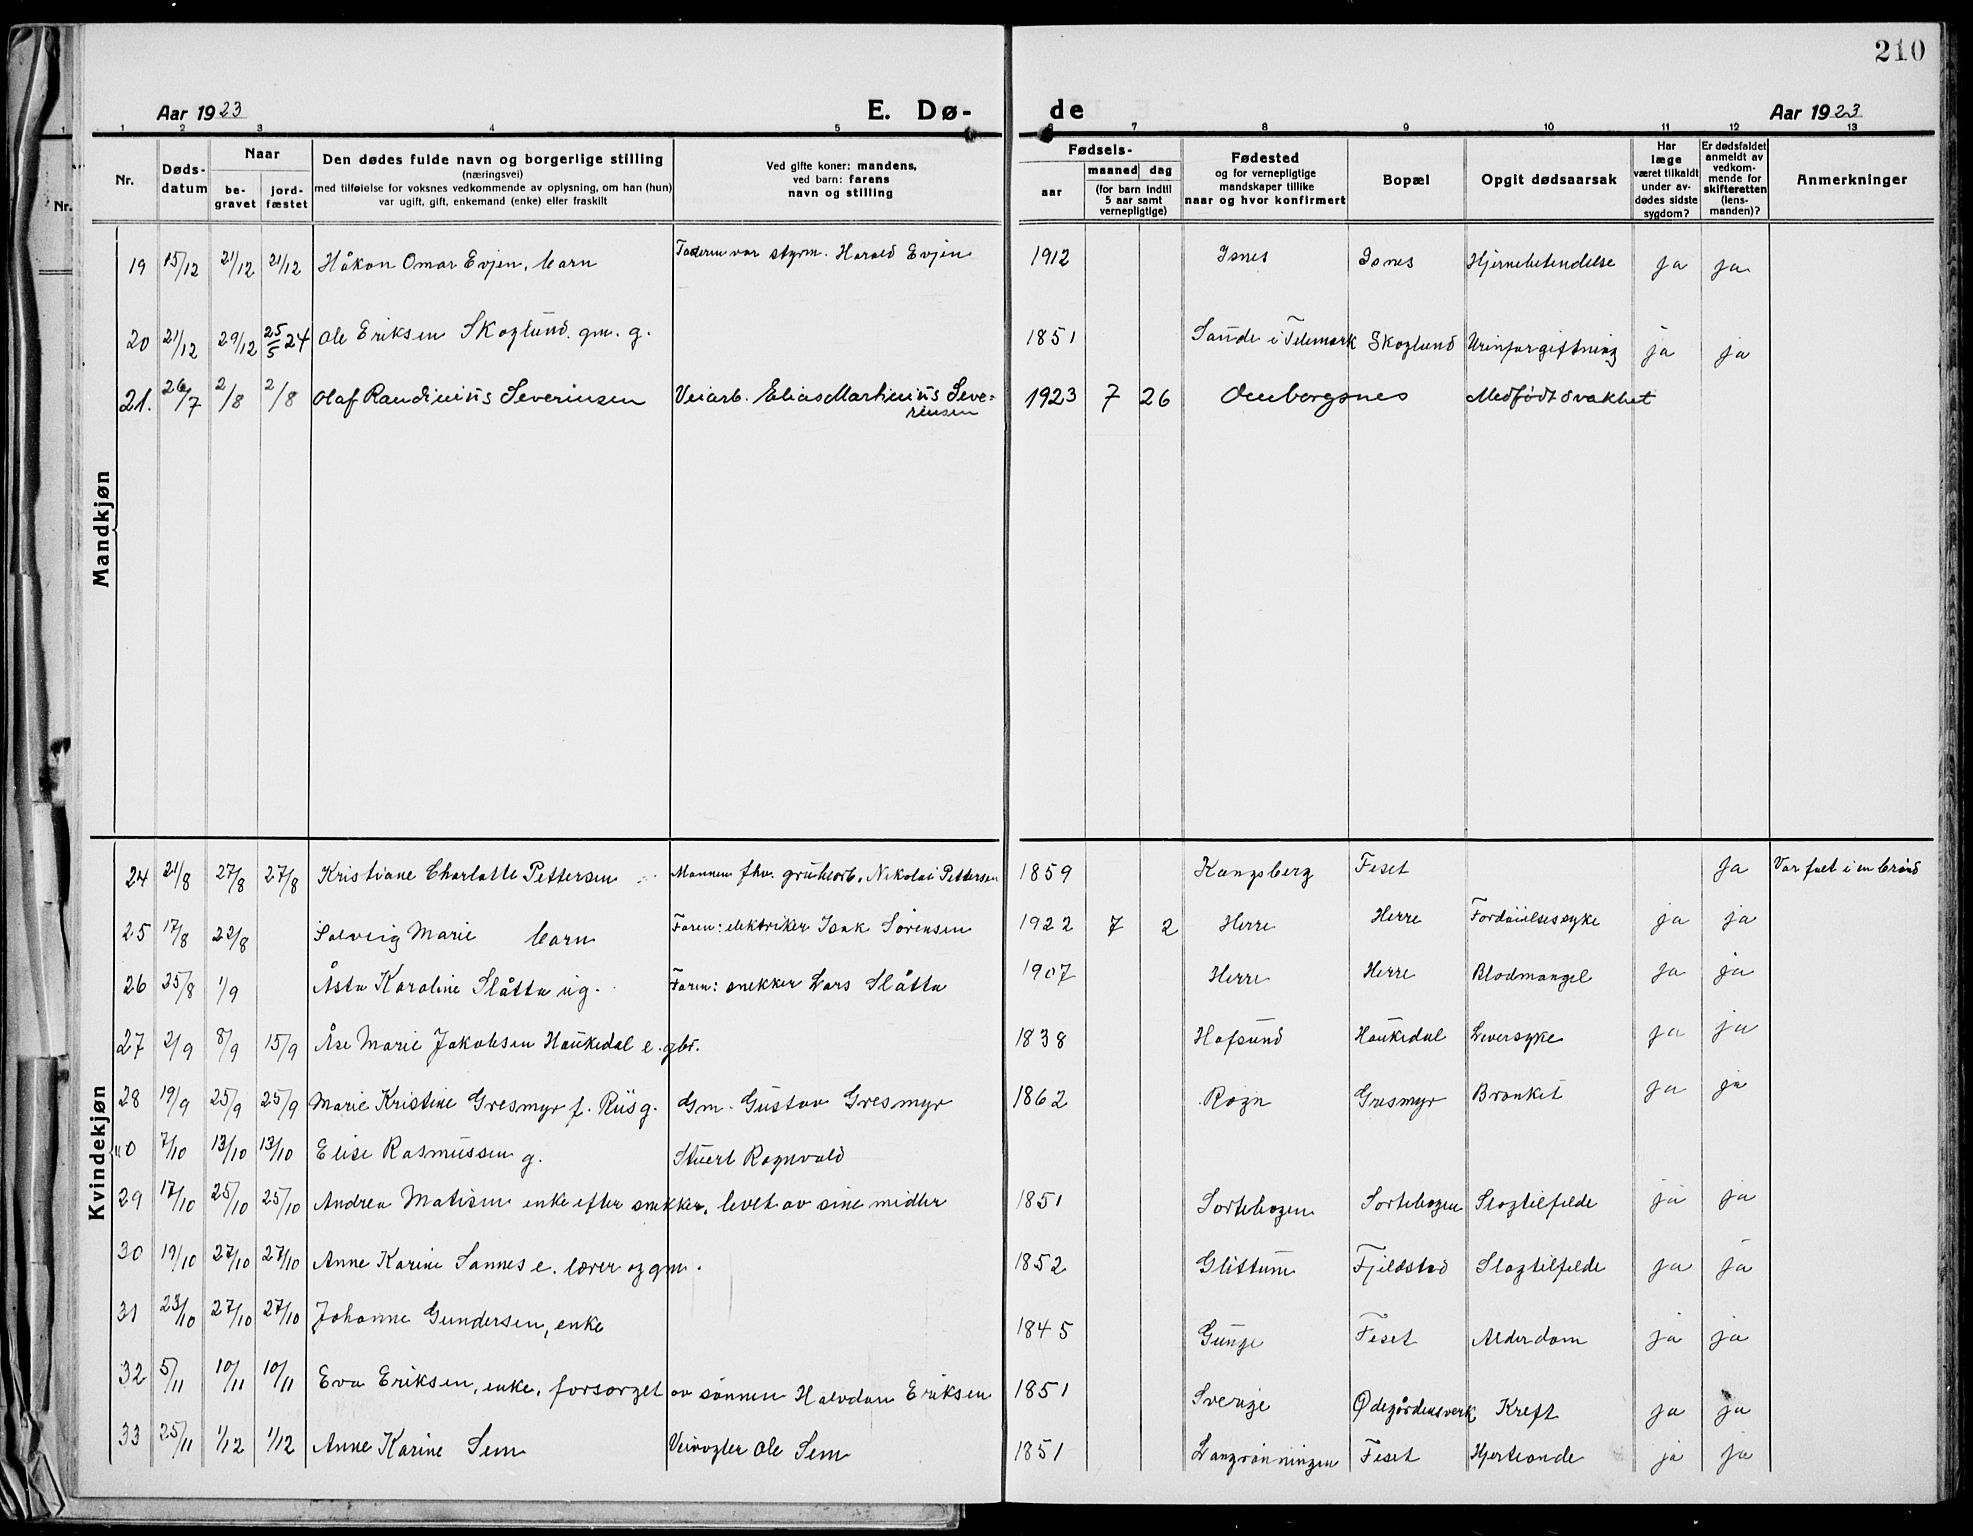 210
Aar 1923 E. Dø- de Aar 1923
1 2 3 4 5 6 7 8 9 10 11 12 13
Nr. Døds-datum Naar be-gravet jord-fæstet Den dødes fulde navn og borgerlige stilling (næringsvei) med tilføielse for voksnes vedkommende av oplysning, om han (hun) var ugift, gift, enkemand (enke) eller fraskilt Ved gifte koner: mandens, ved barn: farens navn og stilling Fødsels- aar maaned dag (for barn indtil 5 aar samt vernepligtige) Fødested og for vernepligtige mandskaper tillike naar og hvor konfirmert Bopæl Opgit dødsaarsak Har læge været tilkaldt under av-dødes sidste sygdom? Er dødsfaldet anmeldt av vedkom-mende for skifteretten (lens-manden)? Anmerkninger
Mandkjøn
19 15/12 21/12 21/12 Håkon Omar Evjen, barn Faderen var styrm. Harald Evjen 1912 Isnes Isnes Hjernebetendelse ja ja
20 21/12 29/12 25/5 24 Ole Eriksen Skoglund. gm. g. 1851 Saude i Telemark Skoglund Urinforgiftning ja ja
21. 26/7 2/8 2/8 Olaf Randinius Severinsen Veiarb. Elias Martinius Seve=
rensen 1923 7 26 Omborgsnes Medfødt svakhet
Kvindekjøn
24 21/8 27/8 27/8 Kristiane Charlotte Pettersen Mannen fhv. grubearb. Nikolai Pettersen 1859 Kongsberg Feset Ja Var falt i en brønd
25 17/8 22/8 Solveig Marie barn Faren: elektriker Isak Sørensen 1922 7 2 Herre Herre Fordøielsessyke ja ja
26 25/8 1/9 Åsta Karoline Slåtta ug. Faren: snekker Lars Slåtta 1907 Herre Herre Blodmangel ja ja
27 2/9 8/9 15/9 Åse Marie Jakobsen Haukedal e. gbr. 1838 Hafsund Haukedal Leversyke ja ja
28 19/9 25/9 25/9 Marie Kristine Gresmyr f. Riis g. Gm. Gustav Gresmyr 1862 Rogn Gresmyr Bronkit ja ja
"0 7/10 13/10 13/10 Elise Rasmussen g. Stuert Ragnvald
29 17/10 25/10 25/10 Andrea Matisen enke efter snekker, levet av sine midler 1851 Sortebogen Sortebogen Slagtilfelde ja ja
30 19/10 27/10 27/10 Anne Karine Sannes e. lærer og gm. 1852 Glittum Fjeldstad Slagtilfelde ja ja
31 23/10 27/10 27/10 Johanne Gundersen, enke 1845 Gunge Feset Alderdom ja ja
32 5/11 10/11 10/11 Eva Eriksen, enke, forsørget av sønnen Halvdan Eriksen 1851 Sverige Ødegårdensverk Kreft ja ja
33 25/11 1/12 1/12 Anne Karine Sem Veivogter Ole Sem 1851 Langrønningen Feset Hjerteonde ja ja